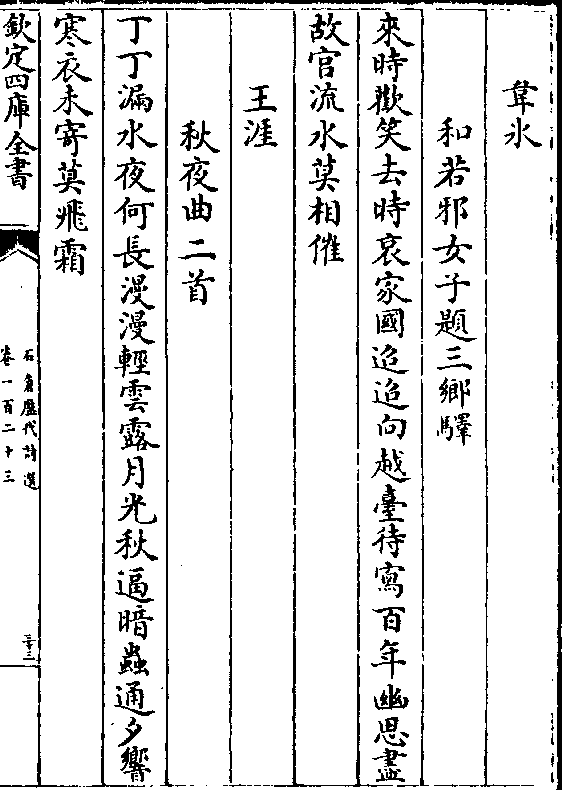 韋氷
和若邪女子題三鄉驛
來時歡笑去時哀家國迢迢向越臺待寫百年幽思盡
故宫流水莫相催
王涯
秋夜曲二首
丁丁漏水夜何長漫漫輕雲露月光秋逼暗蟲通夕響
寒衣未寄莫飛霜
欽定四庫全書
石倉歷代詩選
卷一百二十三
三十三